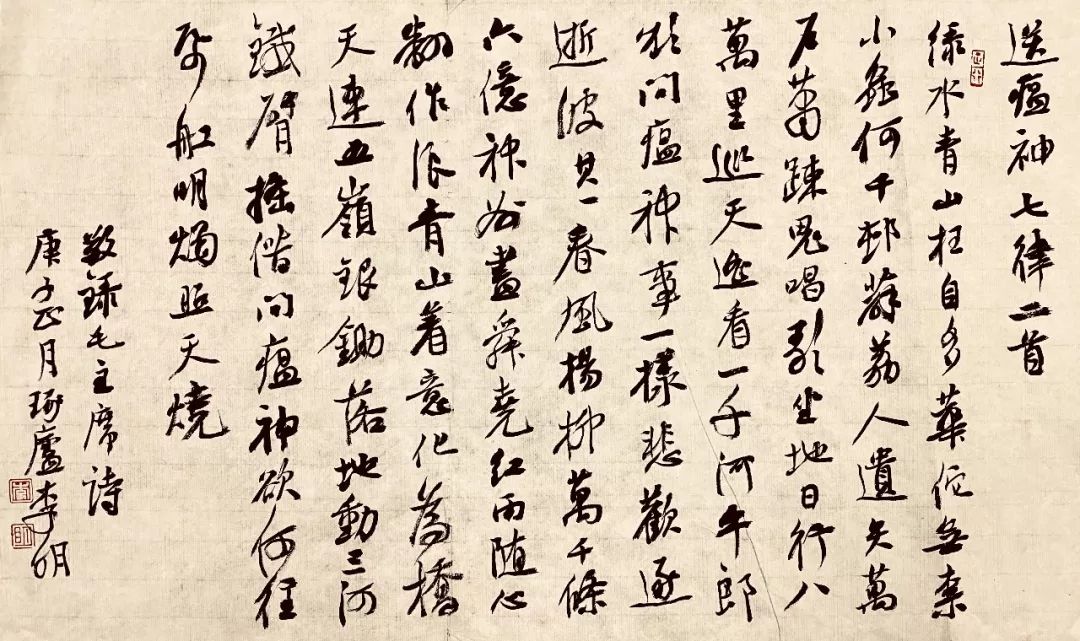 送瘟神七律二首
绿水青山枉自多華佗無奈
小蟲何千邨薜荔人遺矢萬
户蕭疎鬼唱歌坐地日行八
萬里巡天遥看一千河牛郎
欲問瘟神事一樣悲歡逐
逝波其一春風楊柳萬千條
六億神州盡舜堯红雨随心
翻作浪青山着意化為橋
天連五嶺銀鋤落地動三河
鐵臂摇借問瘟神欲何往
帋船明燭照天燒
敬録毛主席詩
庚子正月琢廬李明